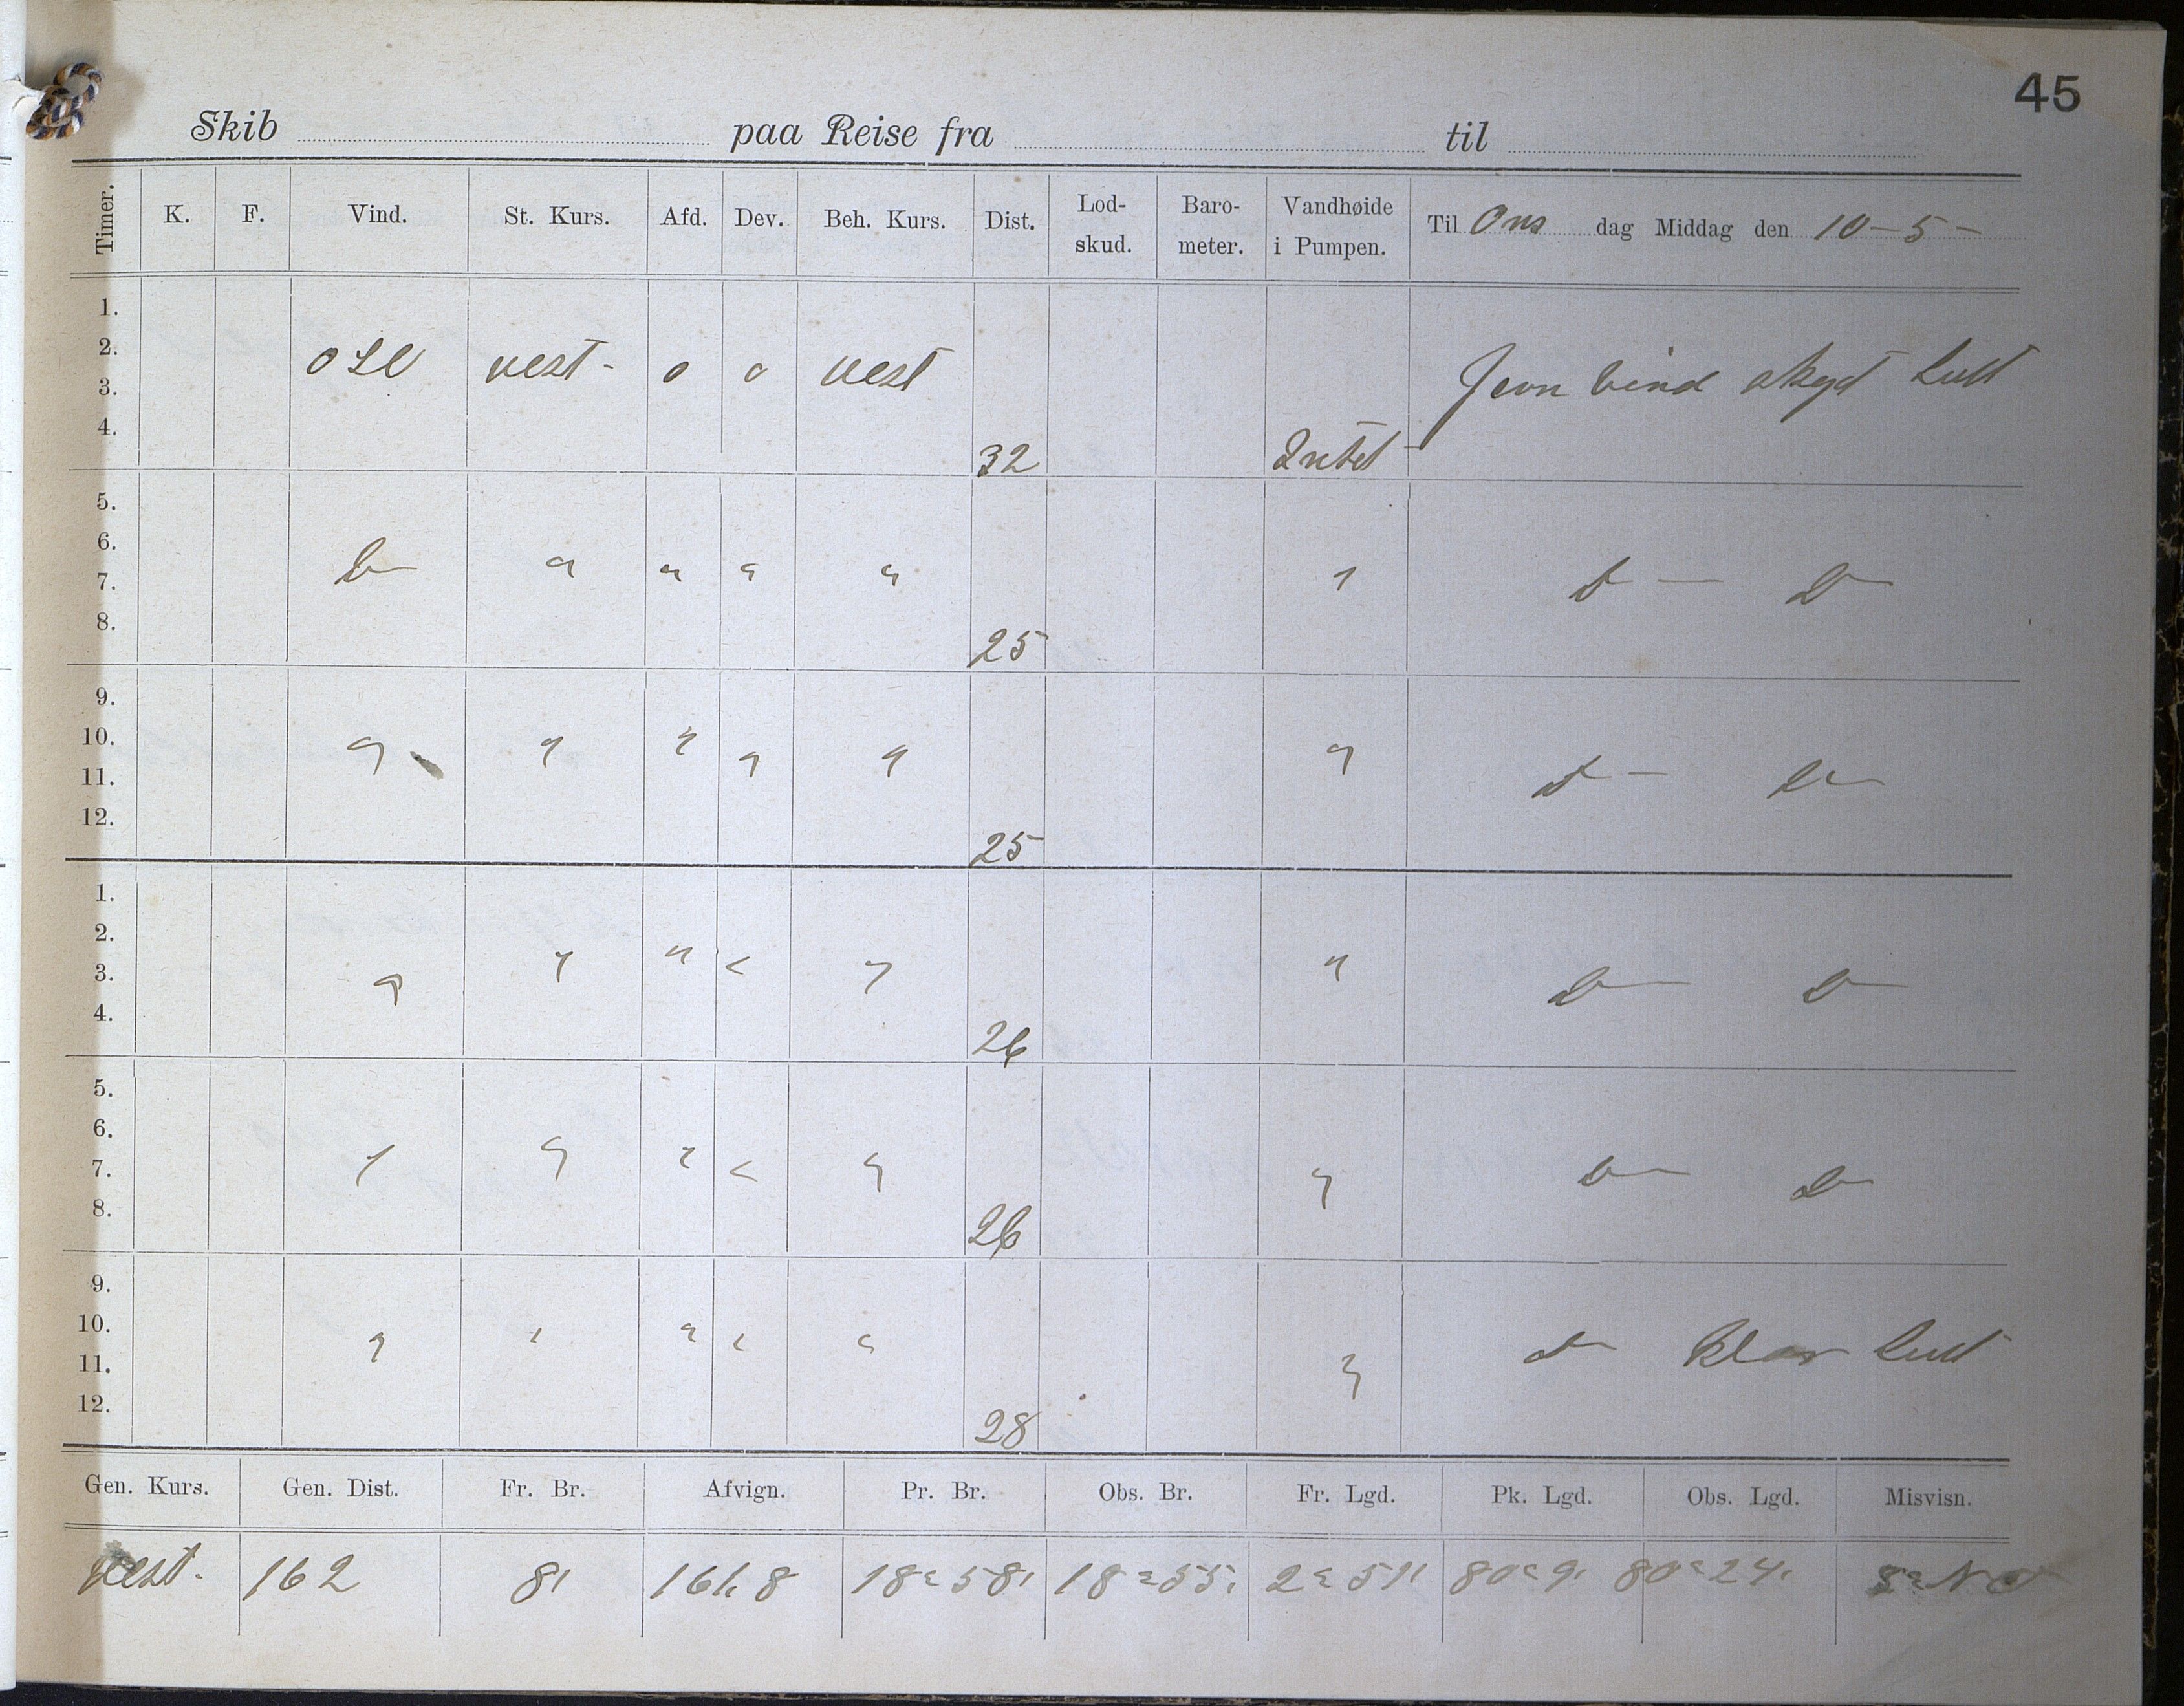 45
Skib paa Reise fra til
Timer. K. F. Vind. St. Kurs. Afd. Dev. Beh. Kurs. Dist. Lod-skud. Baro-meter. Vandhøide i Pumpen. Til Ons dag Middag den 10-5-
1.
2.
OSO vest- 0 0 vest Jevn vind skyet luft
3.
4.
32 Intet
5.
6.
D " " " " " D — D
7.
8.
25
9.
10.
" " " " " " D — D
11.
12.
25
1.
2.
3.
" " " " " " D — D
4.
26
5.
6.
7.
" " " " " " D — D
8.
26
9.
10.
" " " " " " D Klar luft
11.
12.
28
Gen. Kurs. Gen. Dist. Fr. Br. Afvign. Pr. Br. Obs. Br. Fr. Lgd. Pk. Lgd. Obs. Lgd. Misvisn.
vest. 162 8' 161,8 18° 58' 18° 55' 2° 51' 80° 9' 80° 24'